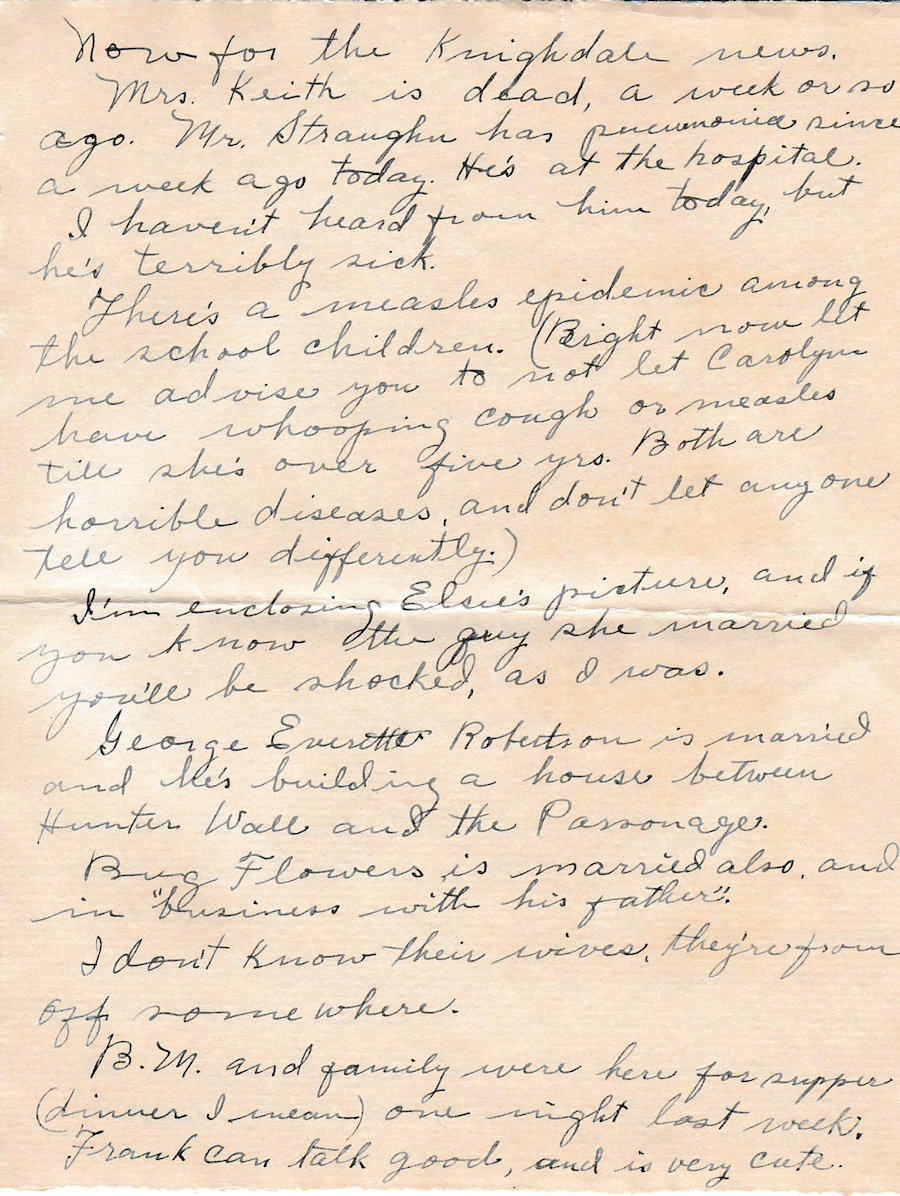 Now for the Knighdale news.
Mrs. Keith is dead, a week or so
ago. Mr. Straughn has pneumonia since
a week ago today. He's at the hospital.
I haven't heard from him today, but
he's terribly sick.
There's a measles epidemic among
the school children. (Bright now let
me advise you to not let Carolyn
have whooping cough or measles
till she's over five yrs. Both are
horrible diseases, and don't let anyone
tell you differently.)
I'm enclosing Elsie's picture, and if
you know the guy she married
you'll be shocked, as I was.
George Everette Robertson is married
and he's building a house between
Hunter Wall and the Parsonage.
Bug Flowers is married also, and
in "business with his father".
I don't know their wives, they're from
off somewhere.
B.M. and family were here for supper
(dinner I mean) one night last week.
Frank can talk good, and is very cute.